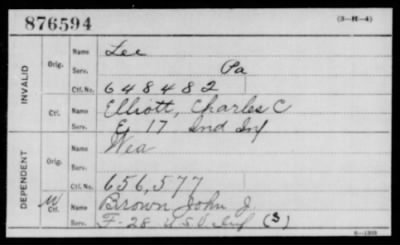 876594 (3-H-4)
INVALID
Orig.
Name Lee
Serv. Pa
Ctf. No. 648482
Ctf.
Name Elliott, Charles C
Serv. E 17 Ind Inf
DEPENDENT
Orig.
Name Wea
Serv.
Ctf. No. 656,577
W
Ctf.
Name Brown John J.
Serv. F-28 U.S.V. Inf (3)